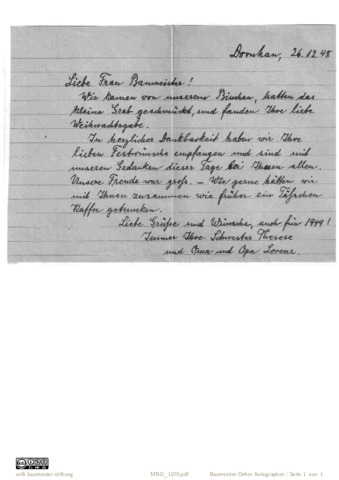 Dornhan, 26.12.48
Liebe Frau Baumeister!
Wir kamen von unserem Bischen, hatten das
kleine Grab geschmückt, und fanden Ihre liebe
Weihnachtsgabe.
In herzlicher Dankbarkeit haben wir Ihre
lieben Festwünsche empfangen und sind mit
unseren Gedanken dieser Tage bei Ihnen allen.
Unsere Freude war groß. – Wie gerne hätten wir
mit Ihnen zusammen wie früher ein Täßchen
Kaffee getrunken.
Liebe Grüße und Wünsche, auch für 1949!
Immer Ihre Schwester Therese
und Oma und Opa Lorenz.
willi baumeister stiftung MBO_1070.pdf Baumeister-Oehm Autographen | Seite 1 von 1